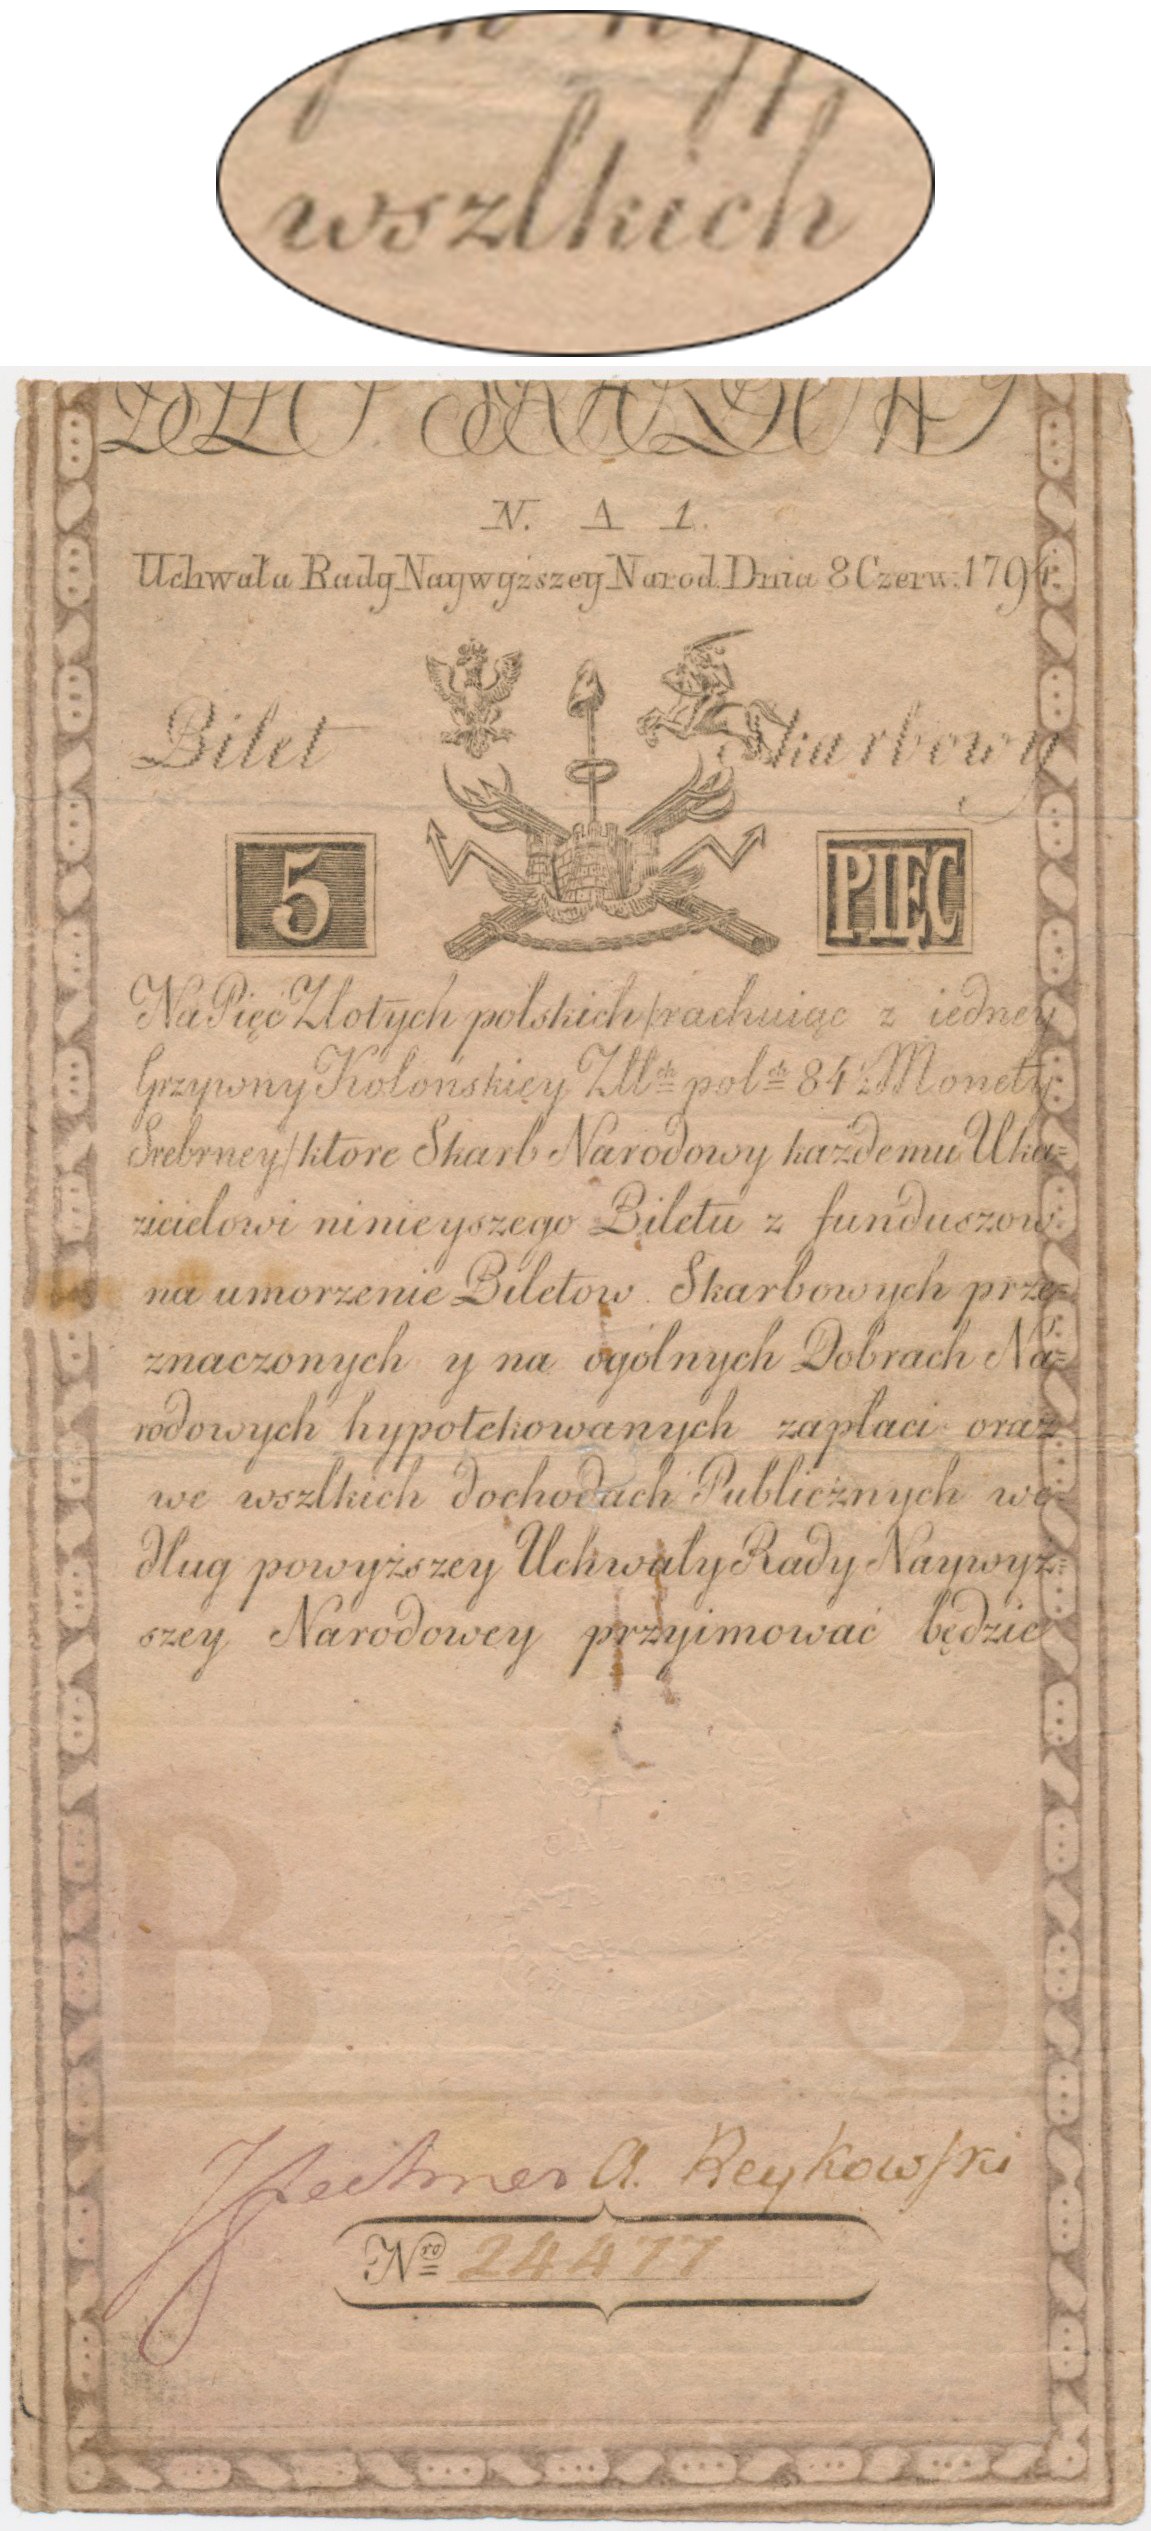 wszlkich
BILET SKARBOWY
N. A 1.
Uchwała Rady Naywyższey Narod. Dnia 8 Czerw: 1794.
Bilet Skarbowy
5 PIĘĆ
Na Pięć Złotych polskich /rachuiąc z iedney
Grzywny Kolońskiey Zll^ch pol^ch 84½ Monety
Srebrney/ ktore Skarb Narodowy każdemu Uka=
zicielowi ninieyszego Biletu z funduszow
na umorzenie Biletow Skarbowych prze=
znaczonych y na ogólnych Dobrach Na=
rodowych hypotekowanych zapłaci oraz
we wszlkich dochodach Publicznych we=
dług powyższey Uchwały Rady Naywyż=
szey Narodowey przyimować będzie
B S
A. Reykowski
N^ro 24477